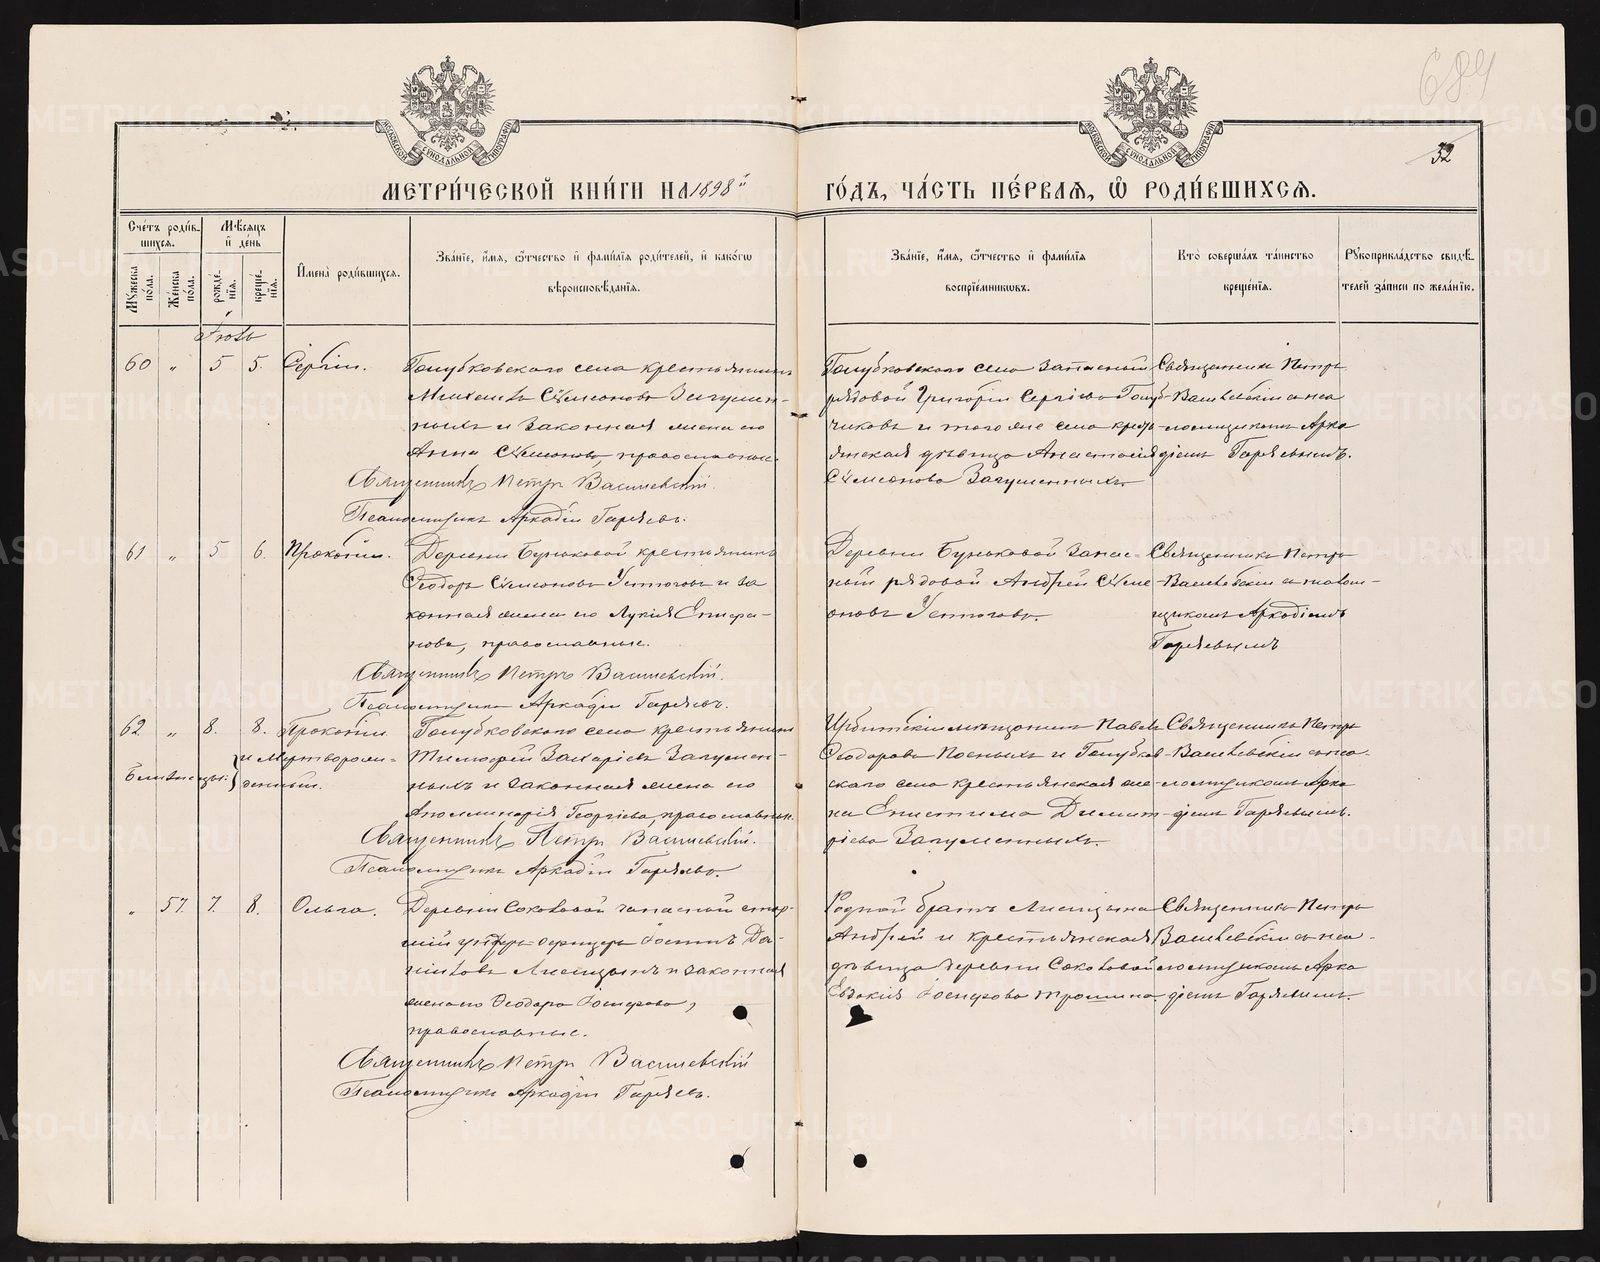 684
32
МОСКОВСКОЙ СѴНОДАЛЬНОЙ ТИПОГРАФІИ
МОСКОВСКОЙ СѴНОДАЛЬНОЙ ТИПОГРАФІИ
МЕТРИ́ЧЕСКОЙ КНИ́ГИ НА 1898й ГО́ДЪ, ЧА́СТЬ ПЕ́РВАЯ, Ѽ РОДИ́ВШИХСЯ.
Сче́тъ роди́вшихся.
Мꙋжеска по́ла.
Же́нска по́ла.
Мѣ́сяцъ и҆ де́нь
рожде́нїя.
креще́нїя.
И҆мена̀ роди́вшихся.
Зва́нїе, и҆́мя, ѻ҆́тчество и҆ фами́лїя роди́телей, и҆ како́гѡ вѣроисповѣ́данїя.
Зва́нїе, и҆́мя, ѻ҆́тчество и҆ фами́лїя воспрїе́мникѡвъ.
Кто̀ соверша́лъ та́инство креще́нїя.
Рꙋкоприкла́дство свидѣ́телей за́писи по жела́нїю.
Іюль
60 " 5 5. Сергій.
Голубковскаго села крестьянинъ
Михаилъ Сѵмеоновъ Загумен-
ныхъ и законная жена его
Анна Сѵмеонова, православные.
Священникъ Петръ Васильевскій.
Псаломщикъ Аркадій Гаряевъ.
Голубковскаго села запасный
рядовой Григорій Сергіевъ Голуб-
чиковъ и того же села кресть-
янская дѣвица Анастасія
Сѵмеонова Загуменныхъ
Священникъ Петръ
Васильевскій съ пса-
ломщикомъ Арка-
діемъ Гаряевымъ.
61 " 5 6. Прокопій.
Деревни Буньковой крестьянинъ
Ѳеодоръ Сѵмеоновъ Устюговъ и за
конная жена его Лукія Епифа-
нова, православные.
Священникъ Петръ Васильевскій.
Псаломщикъ Аркадій Гаряевъ.
Деревни Буньковой запас-
ный рядовой Андрей Сѵме-
оновъ Устюговъ.
Священникъ Петръ
Васильевскій съ псалом-
щикомъ Аркадіемъ
Гаряевымъ
62 " 8. 8. Прокопій
и мертворож-
денный.
близнецы:
Голубковскаго села крестьянинъ
Тимофей Захаріевъ Загумен-
ныхъ и законная жена его
Аполлинарія Георгіева, православные.
Священникъ Петръ Васильевскій.
Псаломщикъ Аркадій Гаряевъ.
Ирбитскій мѣщанинъ Павелъ
Ѳеодоровъ и Голубков-
скаго села крестьянская же-
на Епистима Димит-
ріева Загуменныхъ.
Священникъ Петръ
Васильевскій съ пса-
ломщикомъ Арка-
діемъ Гаряевымъ.
" 57. 7. 8. Ольга.
Деревни Соковой запасный стар-
шій унтеръ-офицеръ Да-
ніиловъ Лисицынъ и законная
жена его Ѳеодора
православные.
Священникъ Петръ Васильевскій
Псаломщикъ Аркадій Гаряевъ.
Родной братъ Лисицына
Андрей и крестьянская
дѣвица деревни Соковой
Евдокія Трошина
Священникъ Петръ
Васильевскій съ пса-
ломщикомъ Арка-
діемъ Гаряевымъ.
METRIKI.GASO-URAL.RU